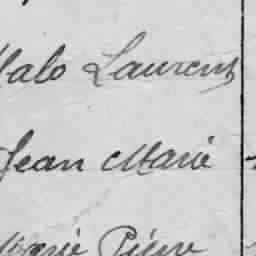 Malo Laurent
Jean Marie
Marie Pierre